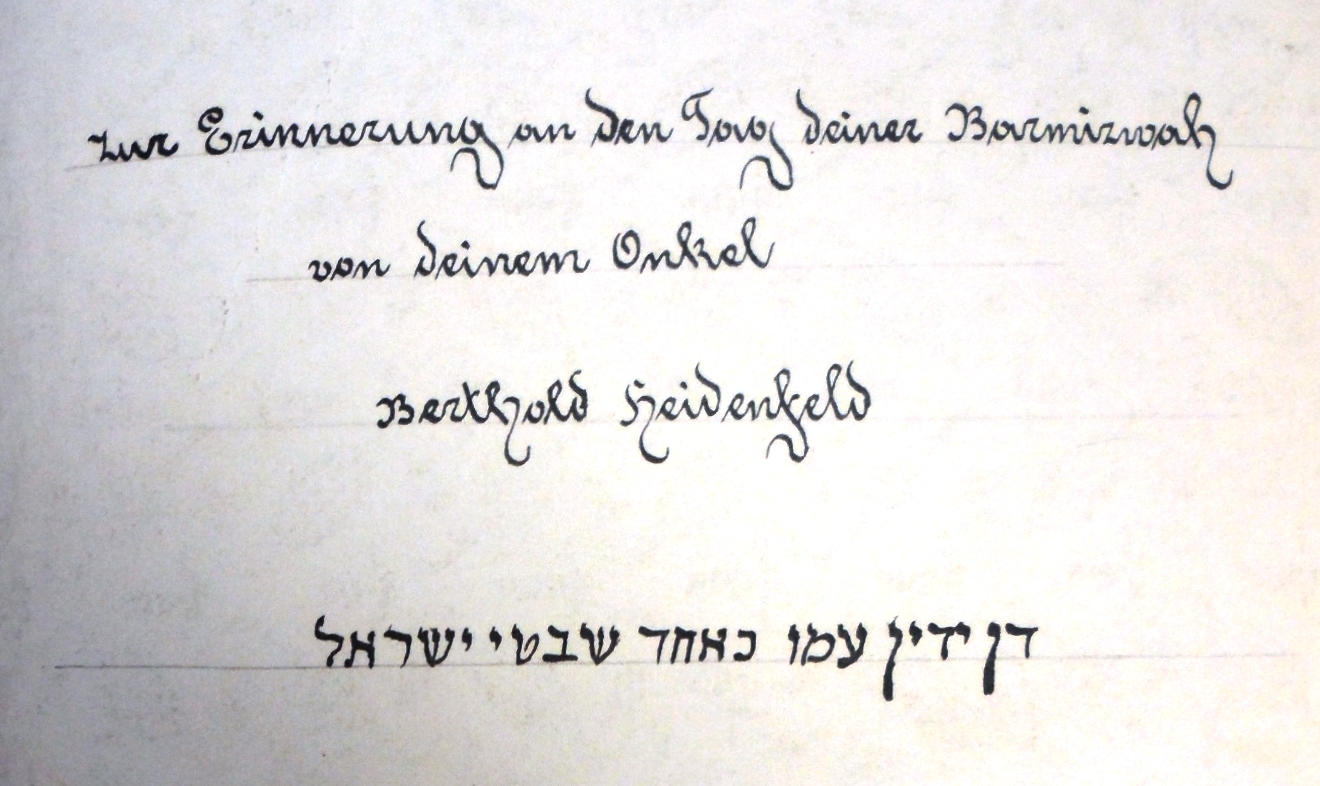 Zur Erinnerung an den Tag deiner Barmizwah
von deinem Onkel
Berthold Heidenfeld
דן ידין עמו כאחד שבטי ישראל